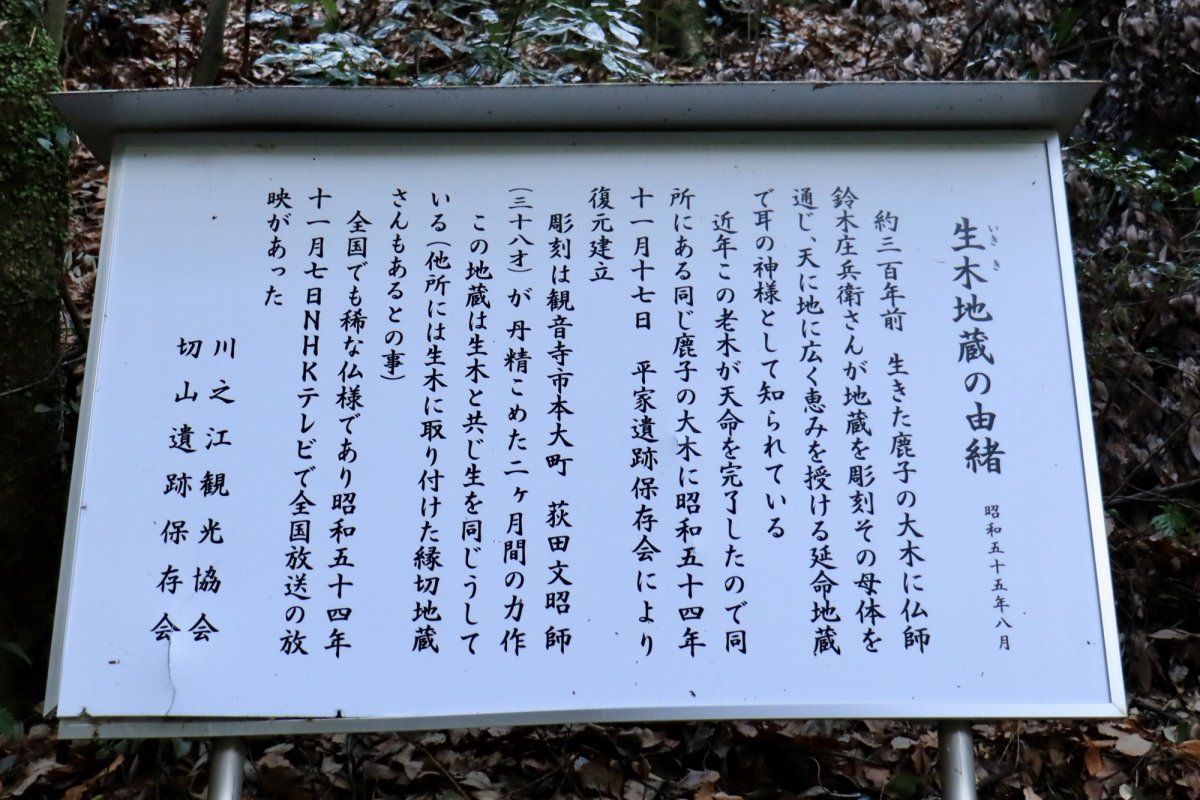 生木地蔵の由緒 昭和五十五年八月
いきき
約三百年前 生きた鹿子の大木に仏師
鈴木庄兵衛さんが地蔵を彫刻その母体を
通じ、天に地に広く恵みを授ける延命地蔵
で耳の神様として知られている
近年この老木が天命を完了したので同
所にある同じ鹿子の大木に昭和五十四年
十一月十七日 平家遺跡保存会により
復元建立
彫刻は観音寺市本大町 荻田文昭師
(三十八才)が丹精こめた二ヶ月間の力作
この地蔵は生木と共じ生を同じうして
いる(他所には生木に取り付けた縁切地蔵
さんもあるとの事)
全国でも稀な仏様であり昭和五十四年
十一月七日NHKテレビで全国放送の放
映があった
川之江観光協会
切山遺跡保存会